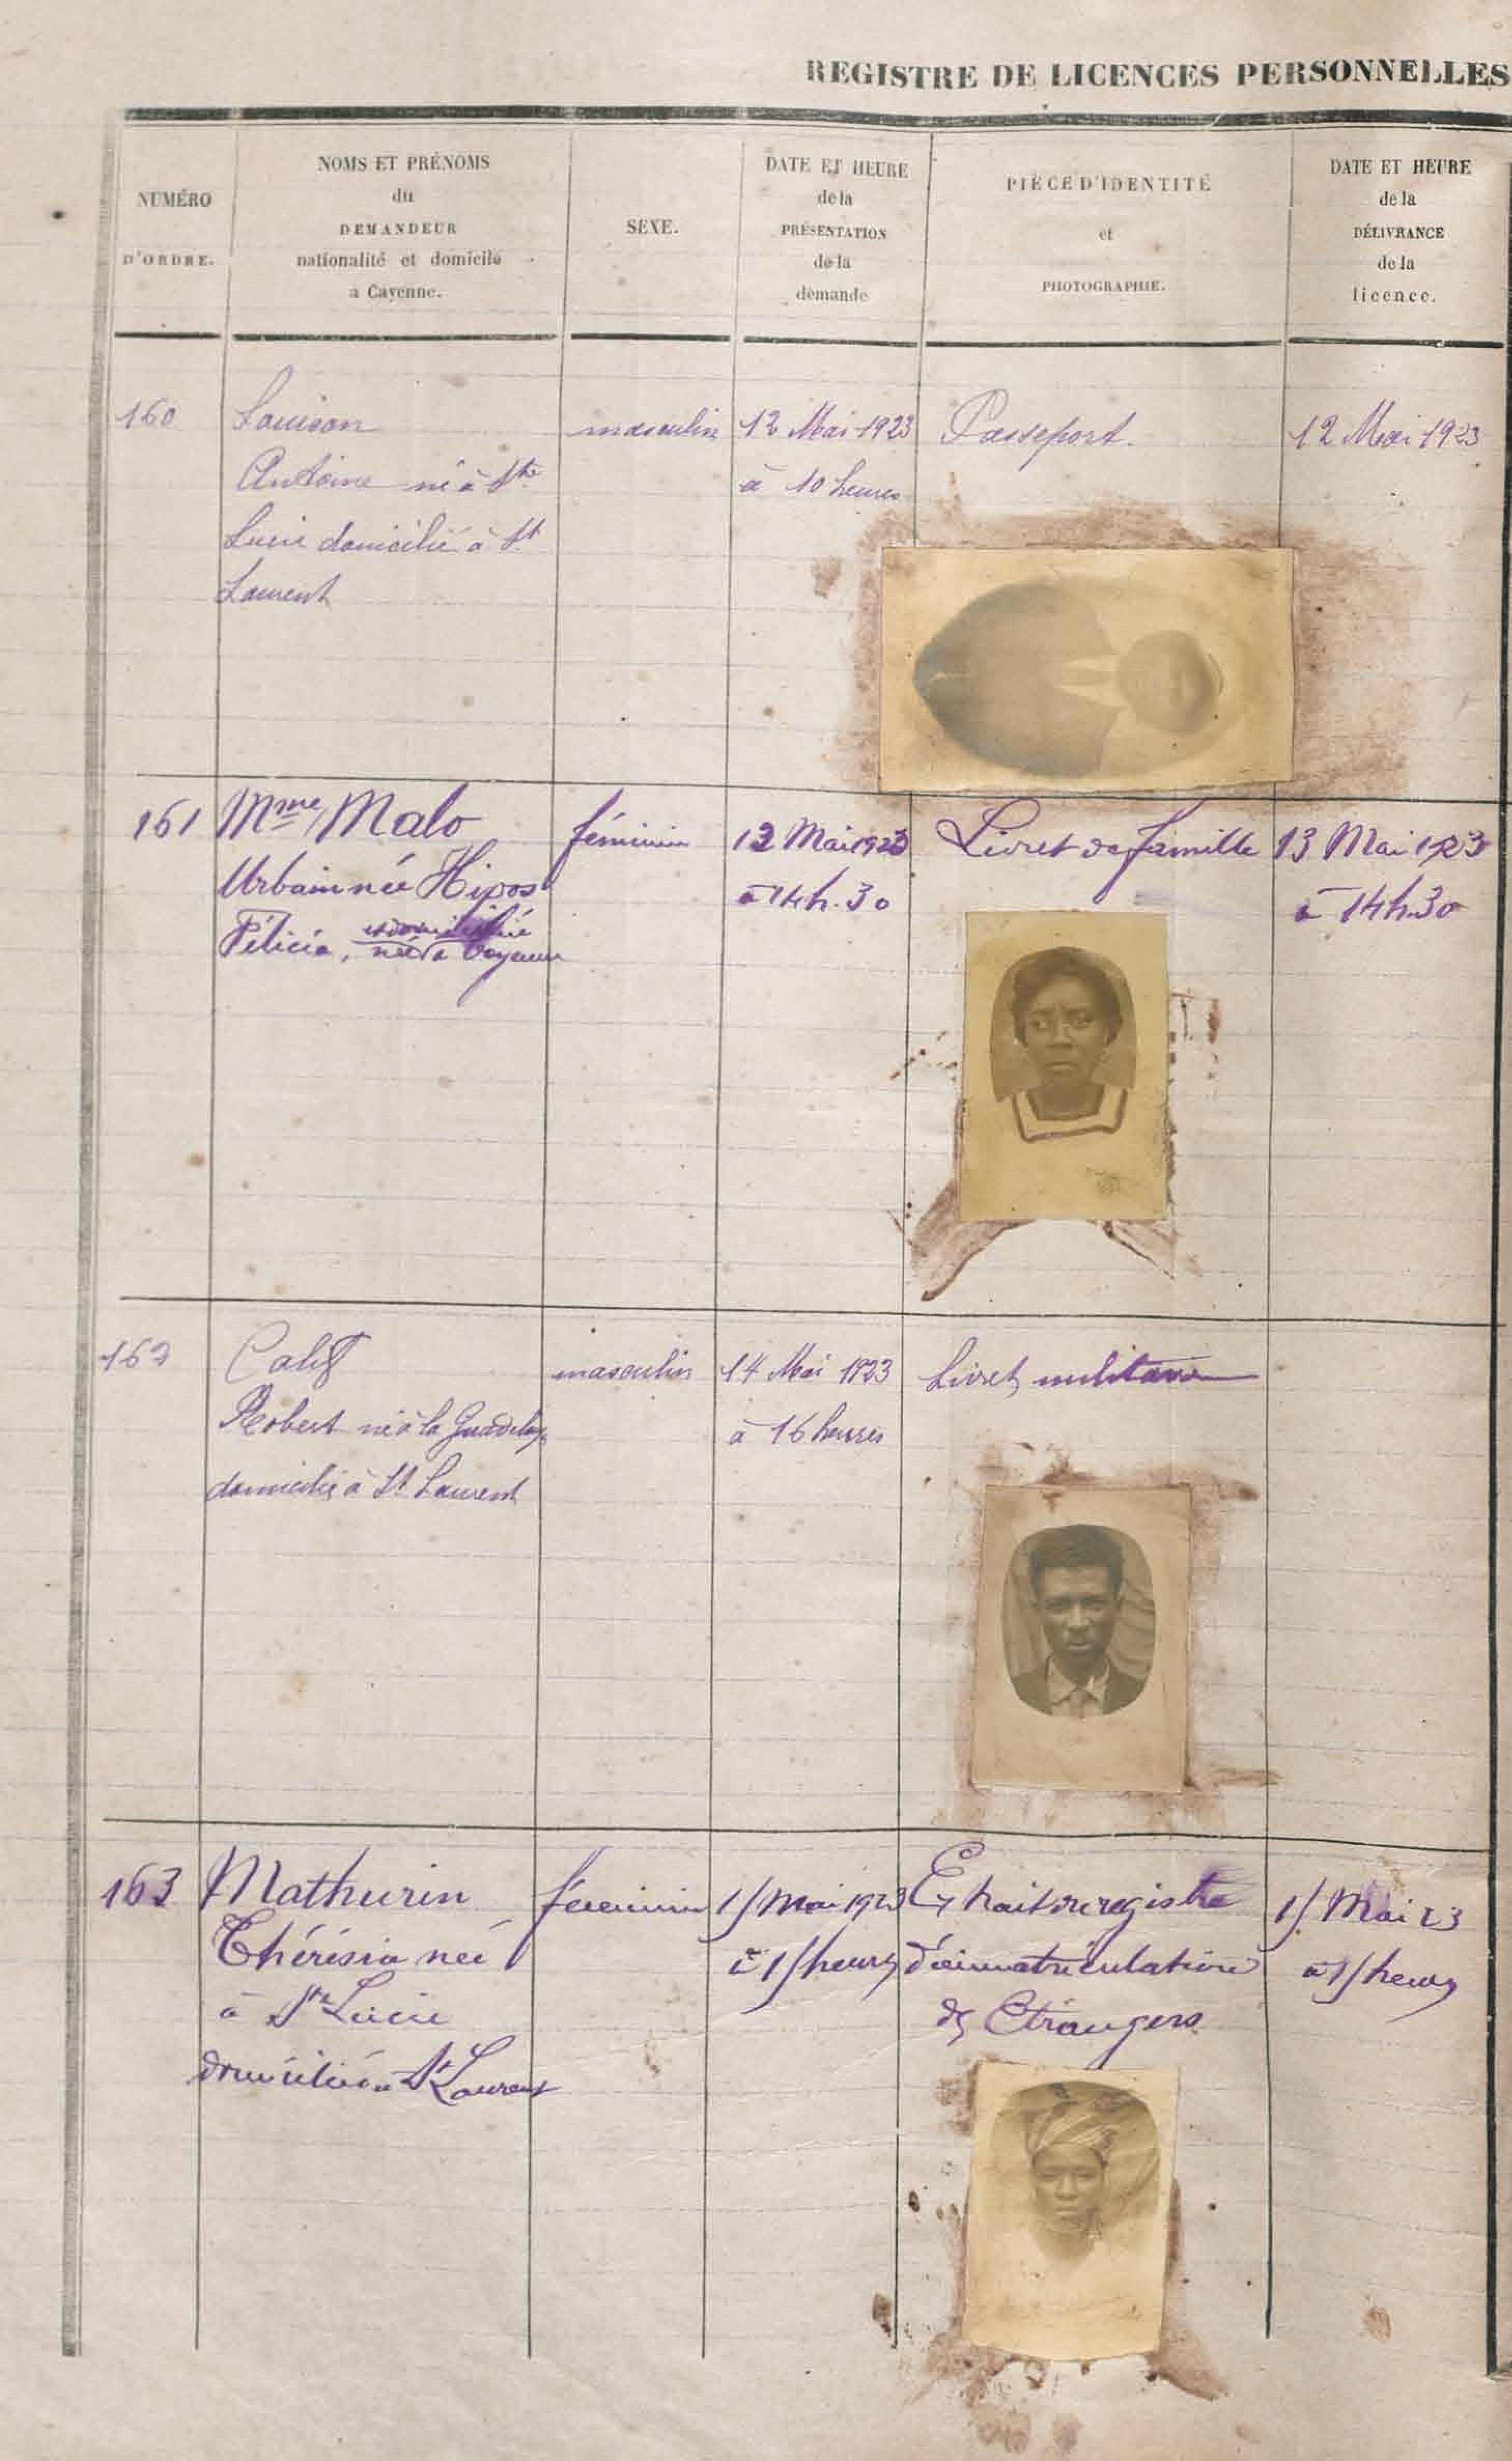 REGISTRE DE LICENCES PERSONNELLES
NUMÉRO
D'ORDRE.
NOMS ET PRÉNOMS
du
DEMANDEUR
nationalité et domicile
a Cayenne.
SEXE.
DATE ET HEURE
de la
PRÉSENTATION
de la
demande
PIÈCE D'IDENTITÉ
et
PHOTOGRAPHIE.
DATE ET HEURE
de la
DÉLIVRANCE
de la
licence.
160
Louison
Antoine né à Ste
Lucie domicilié à St
Laurent
masculin
12 Mai 1923
à 10 heures
Passeport.
12 Mai 1923
161
Mme Malo
Urbain née Hipos
Félicia, née à
et domiciliée
féminin
Mai 1923
à 14h.30
Livret de famille
13 Mai 1923
à 14h30
162
Robert né à la
domicilié à St Laurent
masculin
14 Mai 1923
à 16 heures
Livret militaire
163
Mathurin
Thérésia née
à Ste Lucie
domiciliée à St Laurent
féminin
15 Mai 1923
à 15 heures
Extrait du registre
d'immatriculation
des Etrangers
15 Mai 23
à 15 heures